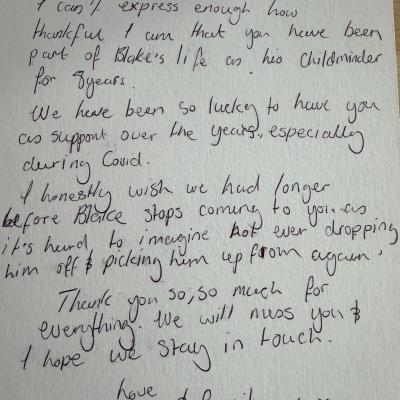 I can't express enough how
thankful I am that you have been
part of Blake's life as his childminder
for 8 years.
We have been so lucky to have you
as support over the years, especially
during Covid.
I honestly wish we had longer
before Blake stops coming to you as
it's hard to imagine not ever dropping
him off & picking him up from again.
Thank you so, so much for
everything. We will miss you &
I hope we stay in touch.
love